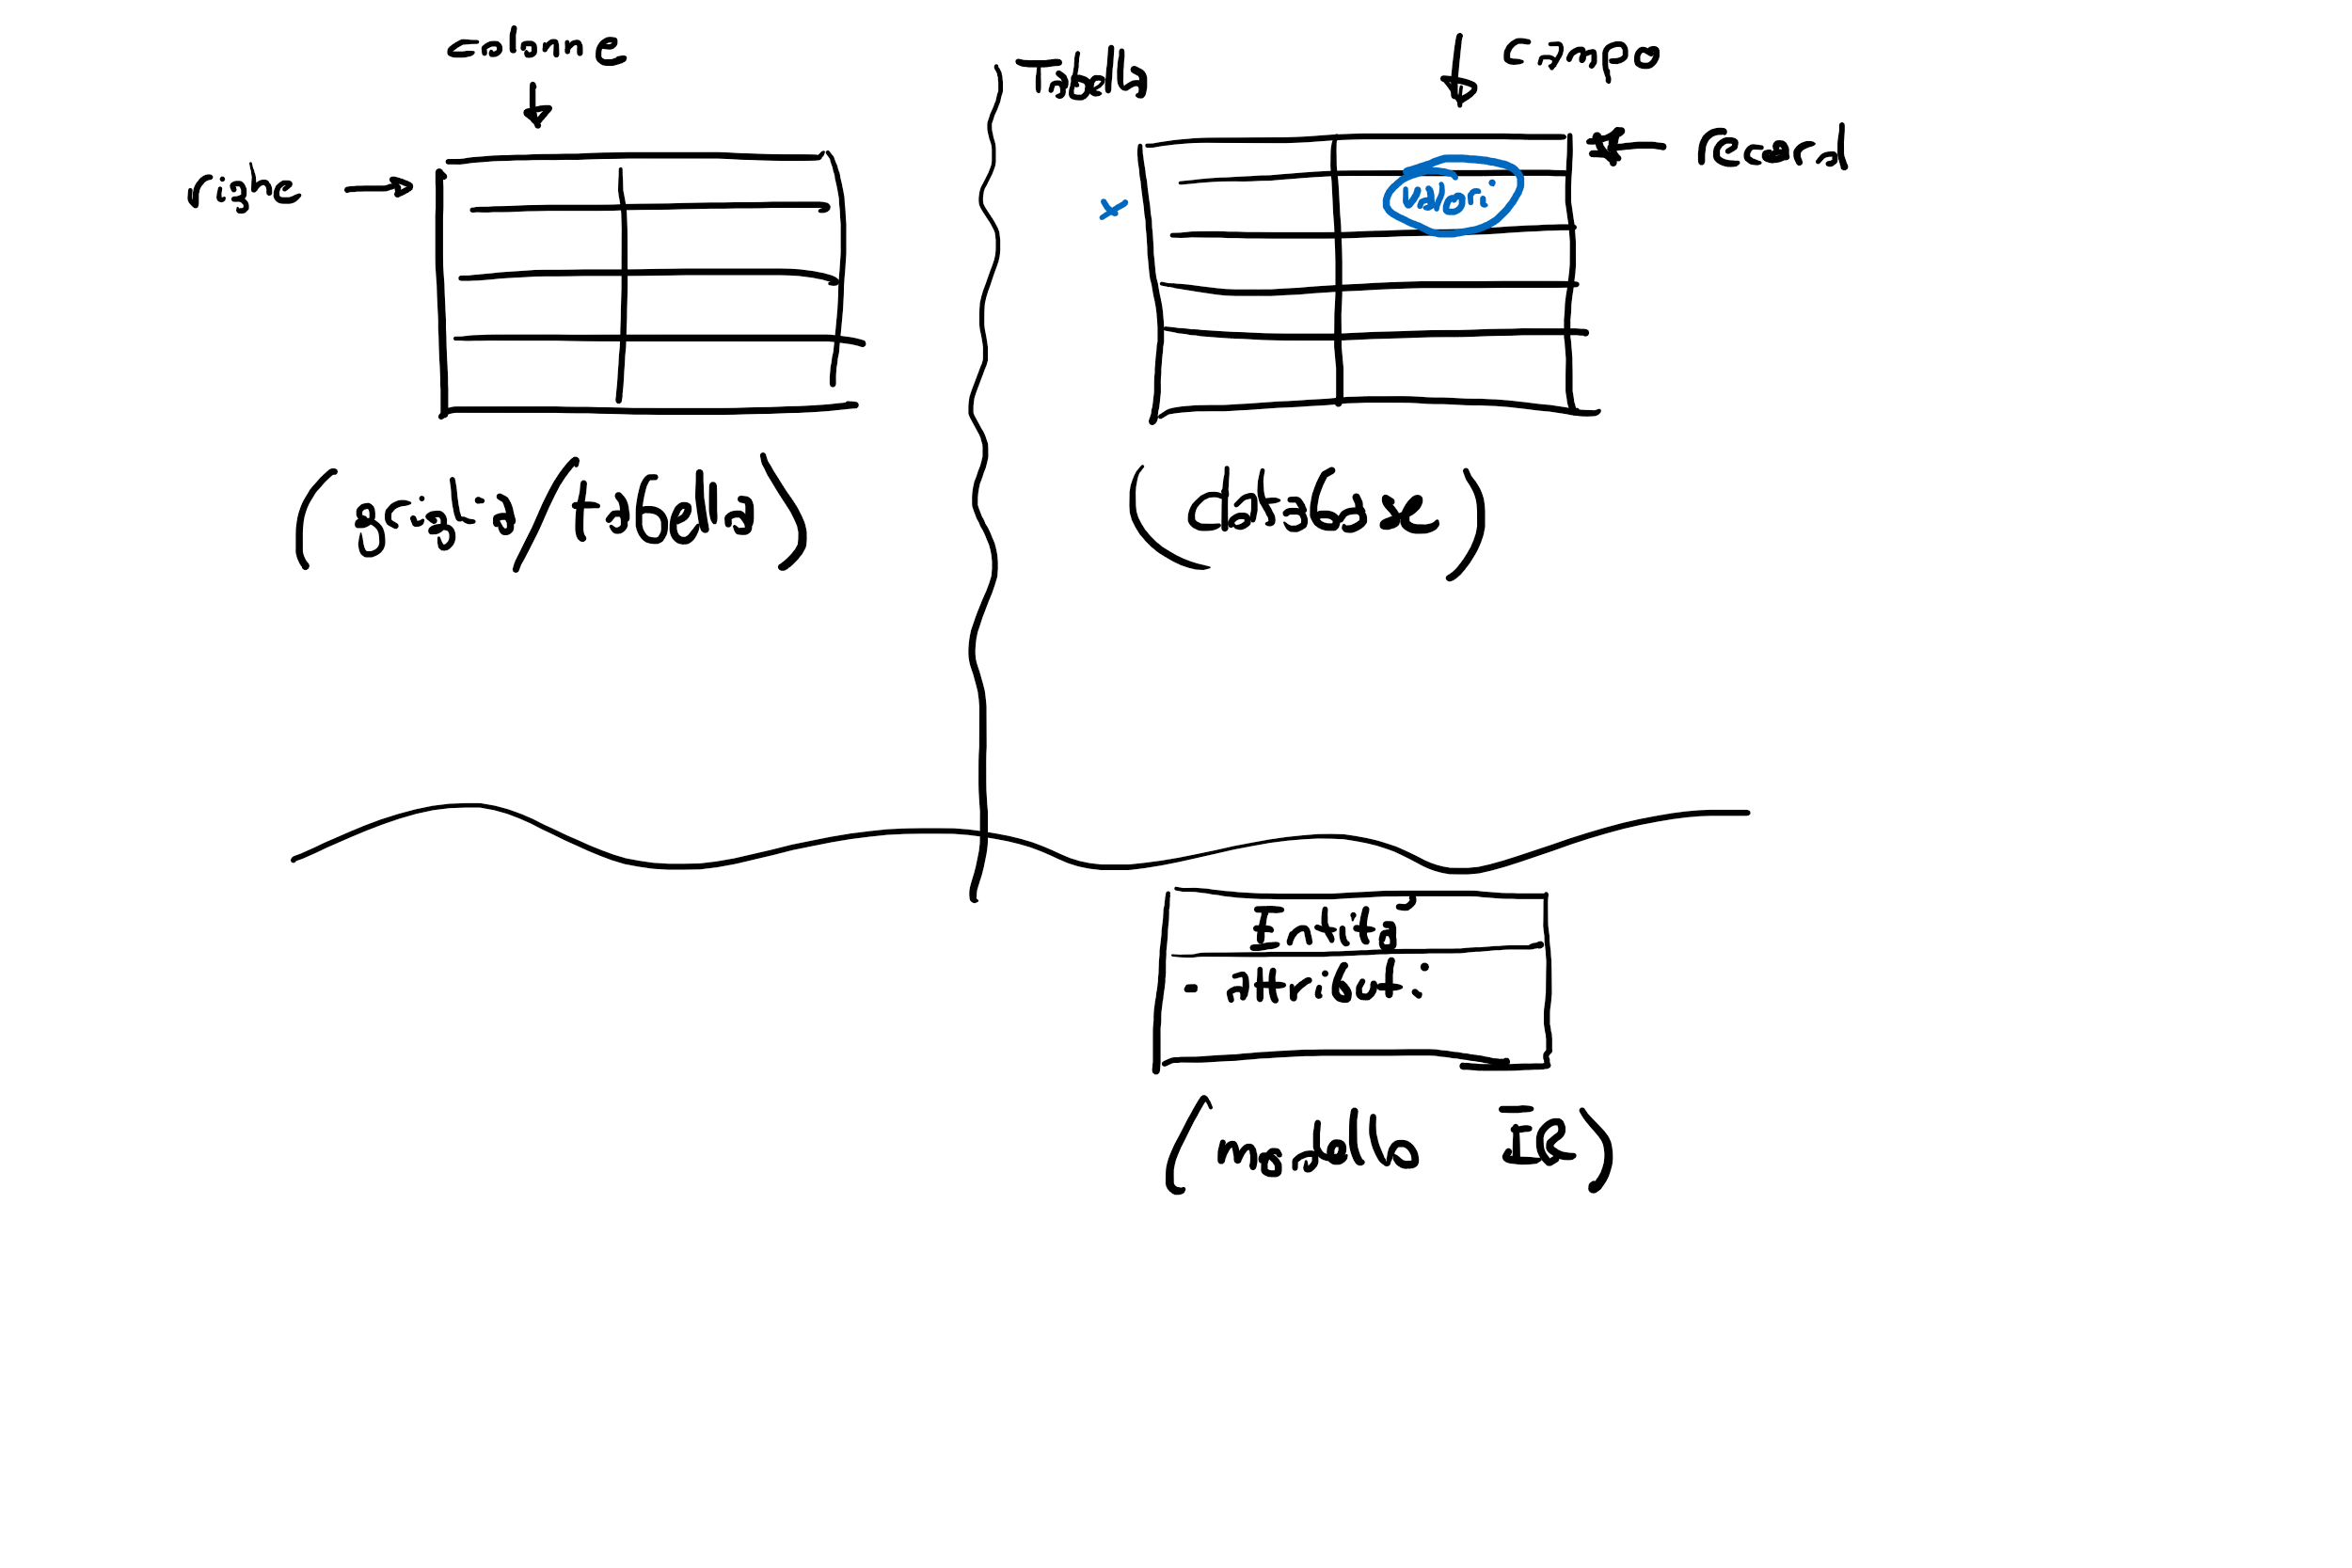 colonne
righe
(griglia/tabella)
Tabella
campo
Record
x
valori
(database)
Entità
- attributi
(modello ER)